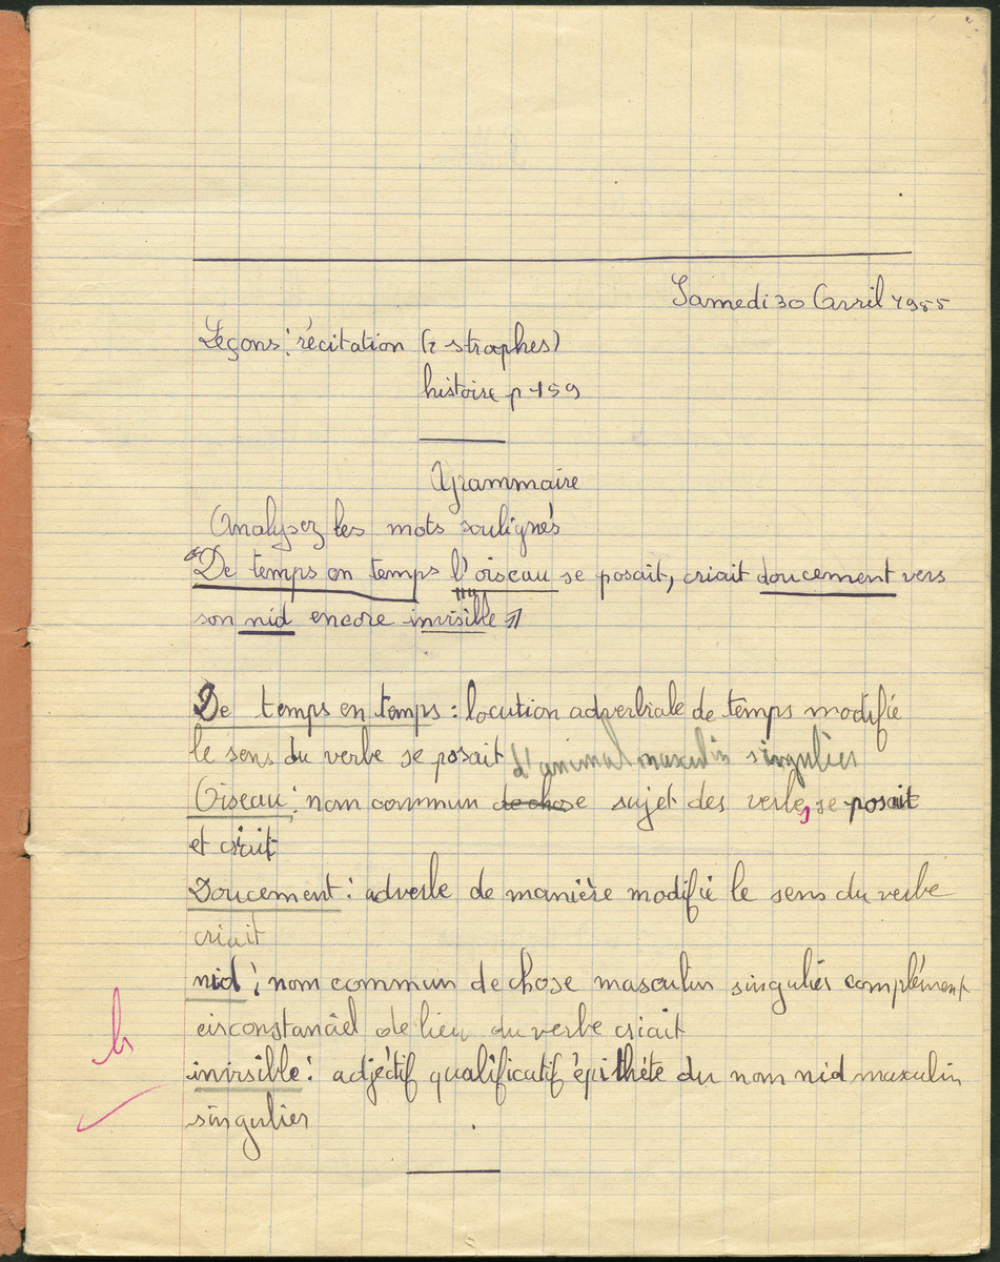 Samedi 30 Avril 1955
Leçons : récitation (2 strophes)
histoire p 159
Grammaire
Analysez les mots soulignés
"De temps en temps l'oiseau se posait, criait doucement vers
son nid encore invisible"
De temps en temps : locution adverbiale de temps modifie
le sens du verbe se posait
d'animal masculin singulier
Oiseau : nom commun de chose sujet des verbes se posait
et criait
Doucement : adverbe de manière modifie le sens du verbe
criait
nid : nom commun de chose masculin singulier complément
circonstanciel de lieu du verbe criait
invisible : adjectif qualificatif épithète du nom nid masculin
singulier